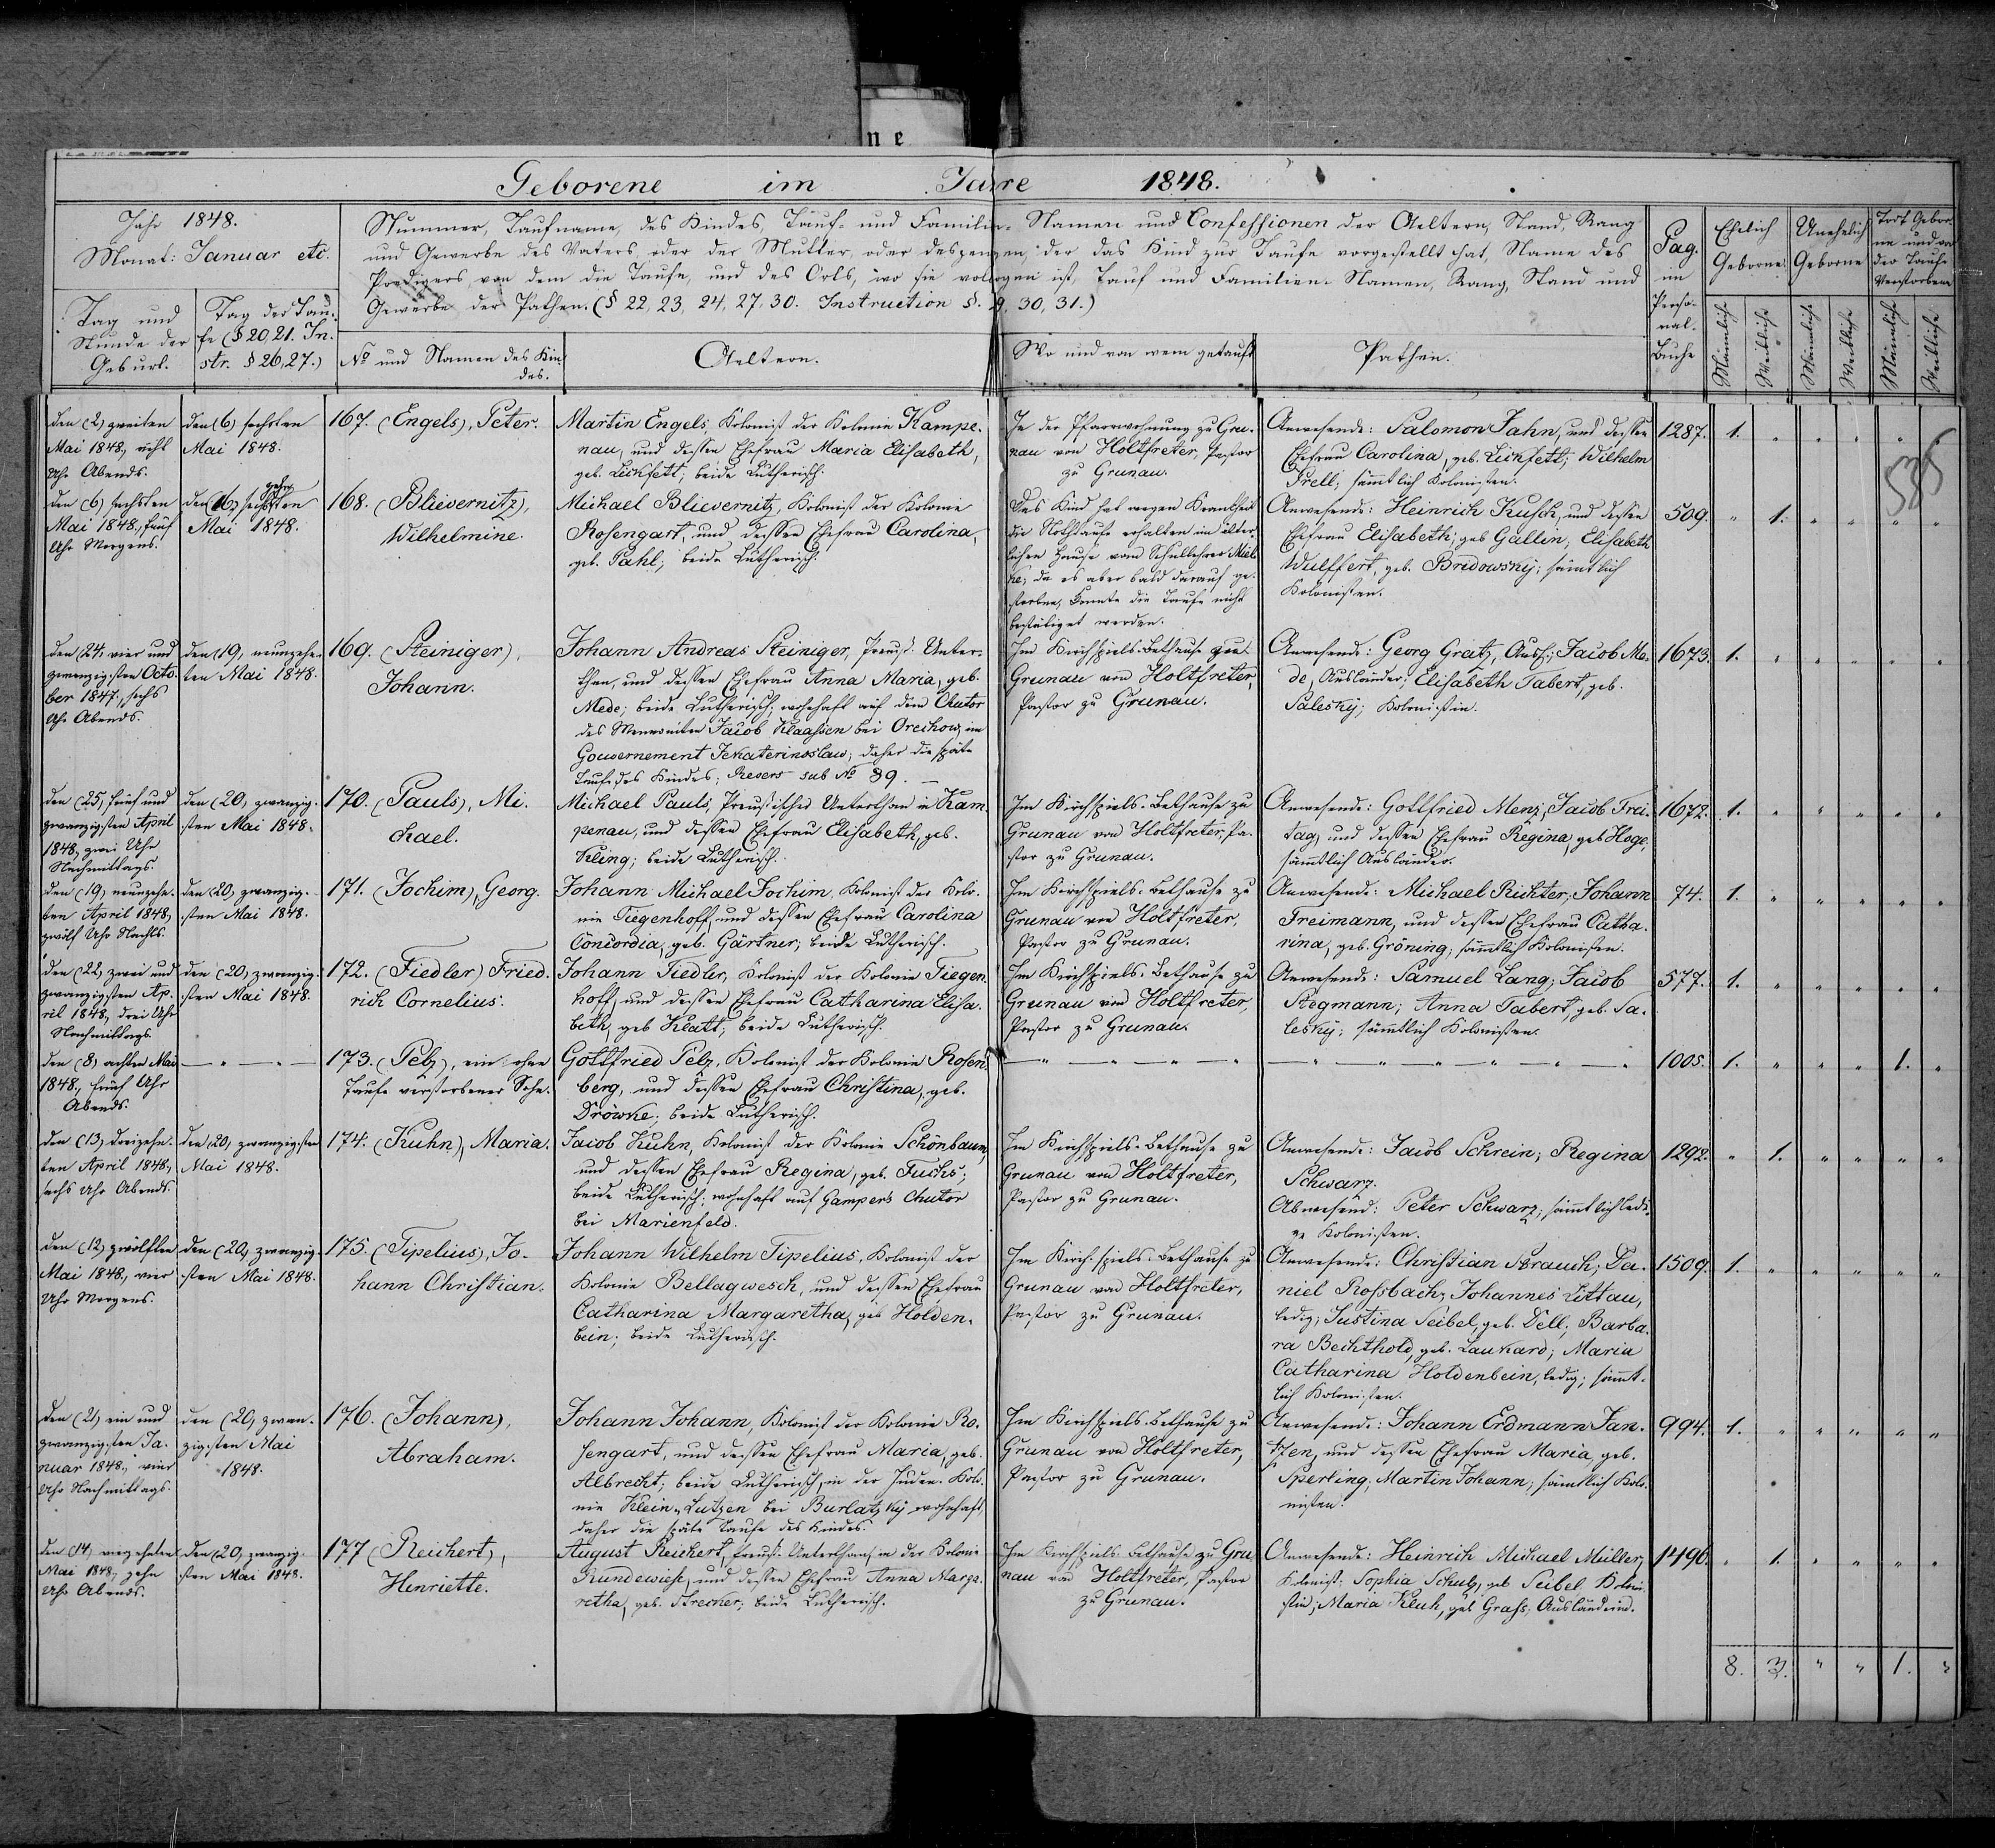 n e
Geborene im Jahre 1848.
Jahr 1848.
Monat: Januar etc.
Tag und
Stunde der
Geburt.
Tag der Tau-
fe (§ 20, 21. In-
str. § 26, 27.)
Nummer, Taufname, des Kindes, Tauf- und Familien-Namen und Confessionen der Aeltern, Stand, Rang
und Gewerbe des Vaters oder der Mutter, oder desjenigen, der das Kind zur Taufe vorgestellt hat, Name des
Predigers, von dem die Taufe, und des Orts, wo sie vollzogen ist, Tauf und Familien-Namen, Rang, Stand und
Gewerbe der Pathen. (§ 22, 23, 24, 27, 30. Instruction §. 29, 30, 31.)
No und Namen des Kin-
des.
Aeltern.
Wo und von wem getauft
Pathen.
Pag.
im
Perso-
nal-
Buche
Ehelich
Geborne
Unehelich
Geborne
Todt Gebor-
ne und vor
der Taufe
Verstorbene
Männlich
Weibliche
Männliche
Weibliche
Männlich
Weibliche
den (2) zweiten
Mai 1848, acht
Uhr Abends.
den (6) sechsten
Mai 1848.
167. (Engels), Peter.
Martin Engels, Kolonist der Kolonie Kampe-
nau, und dessen Ehefrau Maria Elisabeth,
geb. Lickfett; beide Lutherisch.
In der Pfarrwohnung zu Gru-
nau von Holtfreter, Pastor
zu Grunau.
Anwesende: Salomon Jahn, und dessen
Ehefrau Carolina, geb. Lickfett; Wilhelm
Prell; sämtlich Kolonisten.
1287. 1. " " " " "
535
den (6) sechsten
Mai 1848, fünf
Uhr Morgens.
zehn
den (16) sechsten
Mai 1848.
168. (Blievernitz),
Wilhelmine.
Michael Blievernitz, Kolonist der Kolonie
Rosengart, und dessen Ehefrau Carolina,
geb. Pahl; beide Lutherisch.
Das Kind hat wegen Krankheit
die Nothtaufe erhalten im älter-
lichen Hause vom Schullehrer Miel-
ke; da es aber bald darauf ge-
storben, konnte die Taufe nicht
bestätiget werden.
Anwesende: Heinrich Kusch, und dessen
Ehefrau Elisabeth, geb. Gallin; Elisabeth
Wulffert, geb. Bridowsky; sämtlich
Kolonisten.
509. " 1. " " " "
den (24) vier und
zwanzigsten Octo-
ber 1847, sechs
Uhr Abends.
den (19) neunzehn-
ten Mai 1848.
169. (Steiniger),
Johann.
Johann Andreas Steiniger, Preuß. Unter-
than, und dessen Ehefrau Anna Maria, geb.
Mede; beide Lutherisch; wohnhaft auf dem Chutor
des Mennoniten Jacob Klaassen bei Orechow, im
Gouvernement Jekaterinoslaw; daher die späte
Taufe des Kindes; Revers sub No 89. —
Im Kirchspiels-Bethause zu
Grunau von Holtfreter,
Pastor zu Grunau.
Anwesende: Georg Gratz, Ausl.; Jacob Me-
de, Ausländer; Elisabeth Tabert, geb.
Salesky; Kolonistin.
1673. 1. " " " " "
den (25) fünf und
zwanzigsten April
1848, zwei Uhr
Nachmittags.
den (20) zwanzig-
sten Mai 1848.
170. (Pauls), Mi-
chael.
Michael Pauls, Preußischer Unterthan in Kam-
penau, und dessen Ehefrau Elisabeth, geb.
Kling; beide Lutherisch.
Im Kirchspiels-Bethause zu
Grunau von Holtfreter, Pa-
stor zu Grunau.
Anwesende: Gottfried Menz; Jacob Frei-
tag, und dessen Ehefrau Regina, geb. Hoge,
sämtlich Ausländer.
1672. 1. " " " " "
den (19) neunzehn-
ten April 1848,
zwölf Uhr Nachts.
den (20) zwanzig-
sten Mai 1848.
171. (Jochim), Georg.
Johann Michael Jochim, Kolonist der Kolo-
nie Tiegenhoff, und dessen Ehefrau Carolina
Concordia, geb. Gärtner; beide Lutherisch.
Im Kirchspiels-Bethause zu
Grunau von Holtfreter,
Pastor zu Grunau.
Anwesende: Michael Richter; Johann
Freimann, und dessen Ehefrau Catha-
rina, geb. Gröning; sämtlich Kolonisten.
74. 1. " " " " "
den (22) zwei und
zwanzigsten Ap-
ril 1848, drei Uhr
Nachmittags.
den (20) zwanzig-
sten Mai 1848.
172. (Fiedler) Fried-
rich Cornelius.
Johann Fiedler, Kolonist der Kolonie Tiegen-
hoff, und dessen Ehefrau Catharina Elisa-
beth, geb. Klatt; beide Lutherisch.
Im Kirchspiels-Bethause zu
Grunau von Holtfreter,
Pastor zu Grunau.
Anwesende: Samuel Lang; Jacob
Stegmann; Anna Tabert, geb. Sa-
lesky; sämtlich Kolonisten.
577. 1. " " " " "
den (8) achten Mai
1848, fünf Uhr
Abends.
— " — "
173. (Pelz), ein ohne
Taufe verstorbener Sohn.
Gottfried Pelz, Kolonist der Kolonie Rosen-
berg, und dessen Ehefrau Christina, geb.
Dröwke; beide Lutherisch.
— " — " — " — "
— " — " — " — " — "
1005. 1. " " " 1. "
den (13) dreizehn-
ten April 1848,
sechs Uhr Abends.
den (20) zwanzigsten
Mai 1848.
174. (Kuhn), Maria.
Jacob Kuhn, Kolonist der Kolonie Schönbaum,
und dessen Ehefrau Regina, geb. Fuchs;
beide Lutherisch; wohnhaft auf Gampers Chutor
bei Marienfeld.
Im Kirchspiels-Bethause zu
Grunau von Holtfreter,
Pastor zu Grunau.
Anwesende: Jacob Schrein; Regina
Schwarz.
Abwesend: Peter Schwarz; sämtlich ledi-
ge Kolonisten.
1292. " 1. " " " "
den (12) zwölften
Mai 1848, vier
Uhr Morgens.
den (20) zwanzig-
sten Mai 1848.
175. (Tipelius), Jo-
hann Christian.
Johann Wilhelm Tipelius, Kolonist der
Kolonie Bellagwesch, und dessen Ehefrau
Catharina Margaretha, geb. Holden-
bein; beide Lutherisch.
Im Kirchspiels-Bethause zu
Grunau von Holtfreter,
Pastor zu Grunau.
Anwesende: Christian Strauch; Da-
niel Rossbach; Johannes Littau,
ledig; Justina Seibel, geb. Dell; Barba-
ra Bechthold, geb. Laukard; Maria
Catharina Holdenbein, ledig; sämt-
lich Kolonisten.
1509. 1. " " " " "
den (21) ein und
zwanzigsten Ja-
nuar 1848, vier
Uhr Nachmittags.
den (20) zwan-
zigsten Mai
1848.
176. (Johann),
Abraham.
Johann Johann, Kolonist der Kolonie Ro-
sengart, und dessen Ehefrau Maria, geb.
Albrecht; beide Lutherisch, in der Juden-Kolo-
nie Klein-Lutzen bei Burlatzky wohnhaft,
daher die späte Taufe des Kindes.
Im Kirchspiels-Bethause zu
Grunau von Holtfreter,
Pastor zu Grunau.
Anwesende: Johann Erdmann Jan-
tzen, und dessen Ehefrau Maria, geb.
Sperling; Martin Johann; sämtlich Kolo-
nisten.
994. 1. " " " " "
den (14) vierzehnten
Mai 1848, zehn
Uhr Abends.
den (20) zwanzig-
sten Mai 1848.
177 (Reichert),
Henriette.
August Reichert, Preuß. Unterthan, in der Kolonie
Rundewiese, und dessen Ehefrau Anna Marga-
retha, geb. Strecker; beide Lutherisch.
Im Kirchspiels-Bethause zu Gru-
nau von Holtfreter, Pastor
zu Grunau.
Anwesende: Heinrich Michael Müller,
Kolonist; Sophia Schulz, geb. Seibel, Koloni-
stin; Maria Kluk, geb. Grass, Ausländerin.
1496. " 1. " " " "
8. 3. " " 1. "